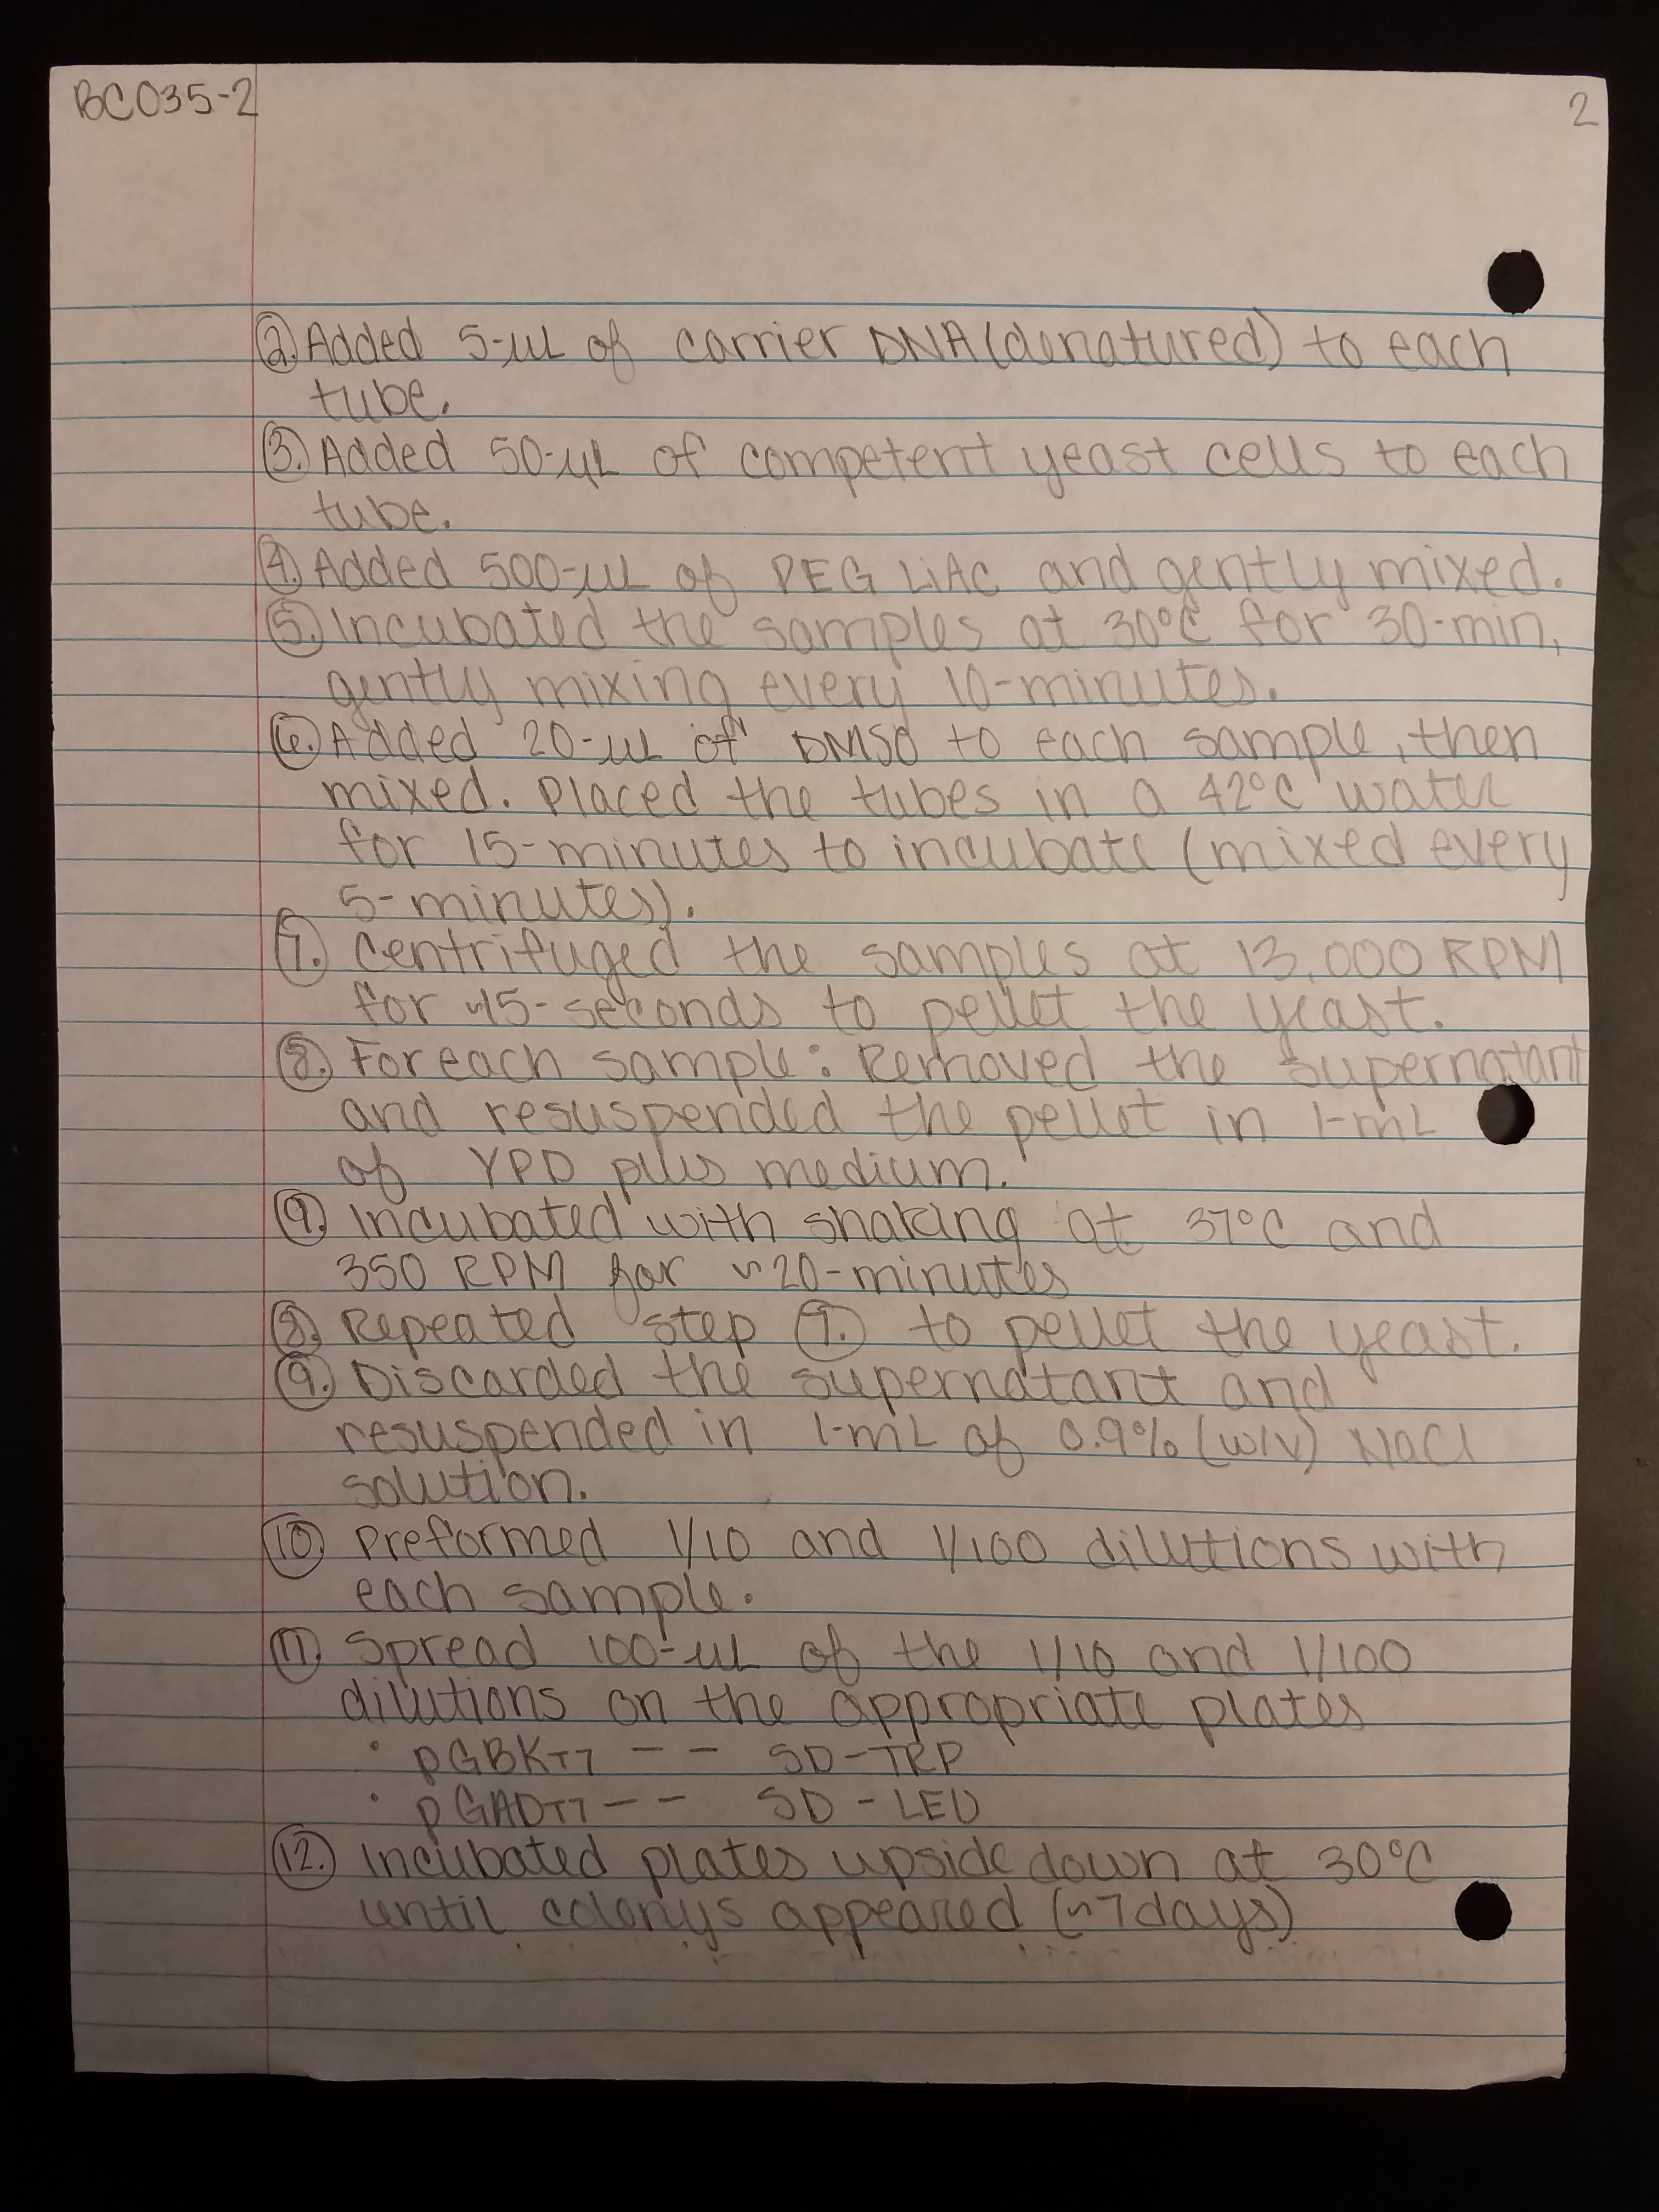 BC035-2
2
②. Added 5-µL of carrier DNA (denatured) to each
tube.
③. Added 50-µL of competent yeast cells to each
tube.
④. Added 500-µL of PEG LiAc and gently mixed.
⑤. Incubated the samples at 30°C for 30-min,
gently mixing every 10-minutes.
⑥. Added 20-µL of DMSO to each sample, then
mixed. Placed the tubes in a 42°C water
for 15-minutes to incubate (mixed every
5-minutes).
⑦. Centrifuged the samples at 13,000 RPM
for ~15-seconds to pellet the yeast.
⑧. For each sample: Removed the supernatant
and resuspended the pellet in 1-mL
of YPD plus medium.
⑨. Incubated with shaking at 37°C and
350 RPM for ~20-minutes
⑧. Repeated step ⑦. to pellet the yeast.
⑨. Discarded the supernatant and
resuspended in 1-mL of 0.9% (w/v) NaCl
solution.
⑩. Preformed 1/10 and 1/100 dilutions with
each sample.
⑪. Spread 100-µL of the 1/10 and 1/100
dilutions on the appropriate plates
• pGBKT7 -- SD-TRP
• pGADT7 -- SD-LEU
⑫. Incubated plates upside down at 30°C
until colonys appeared (~7days)